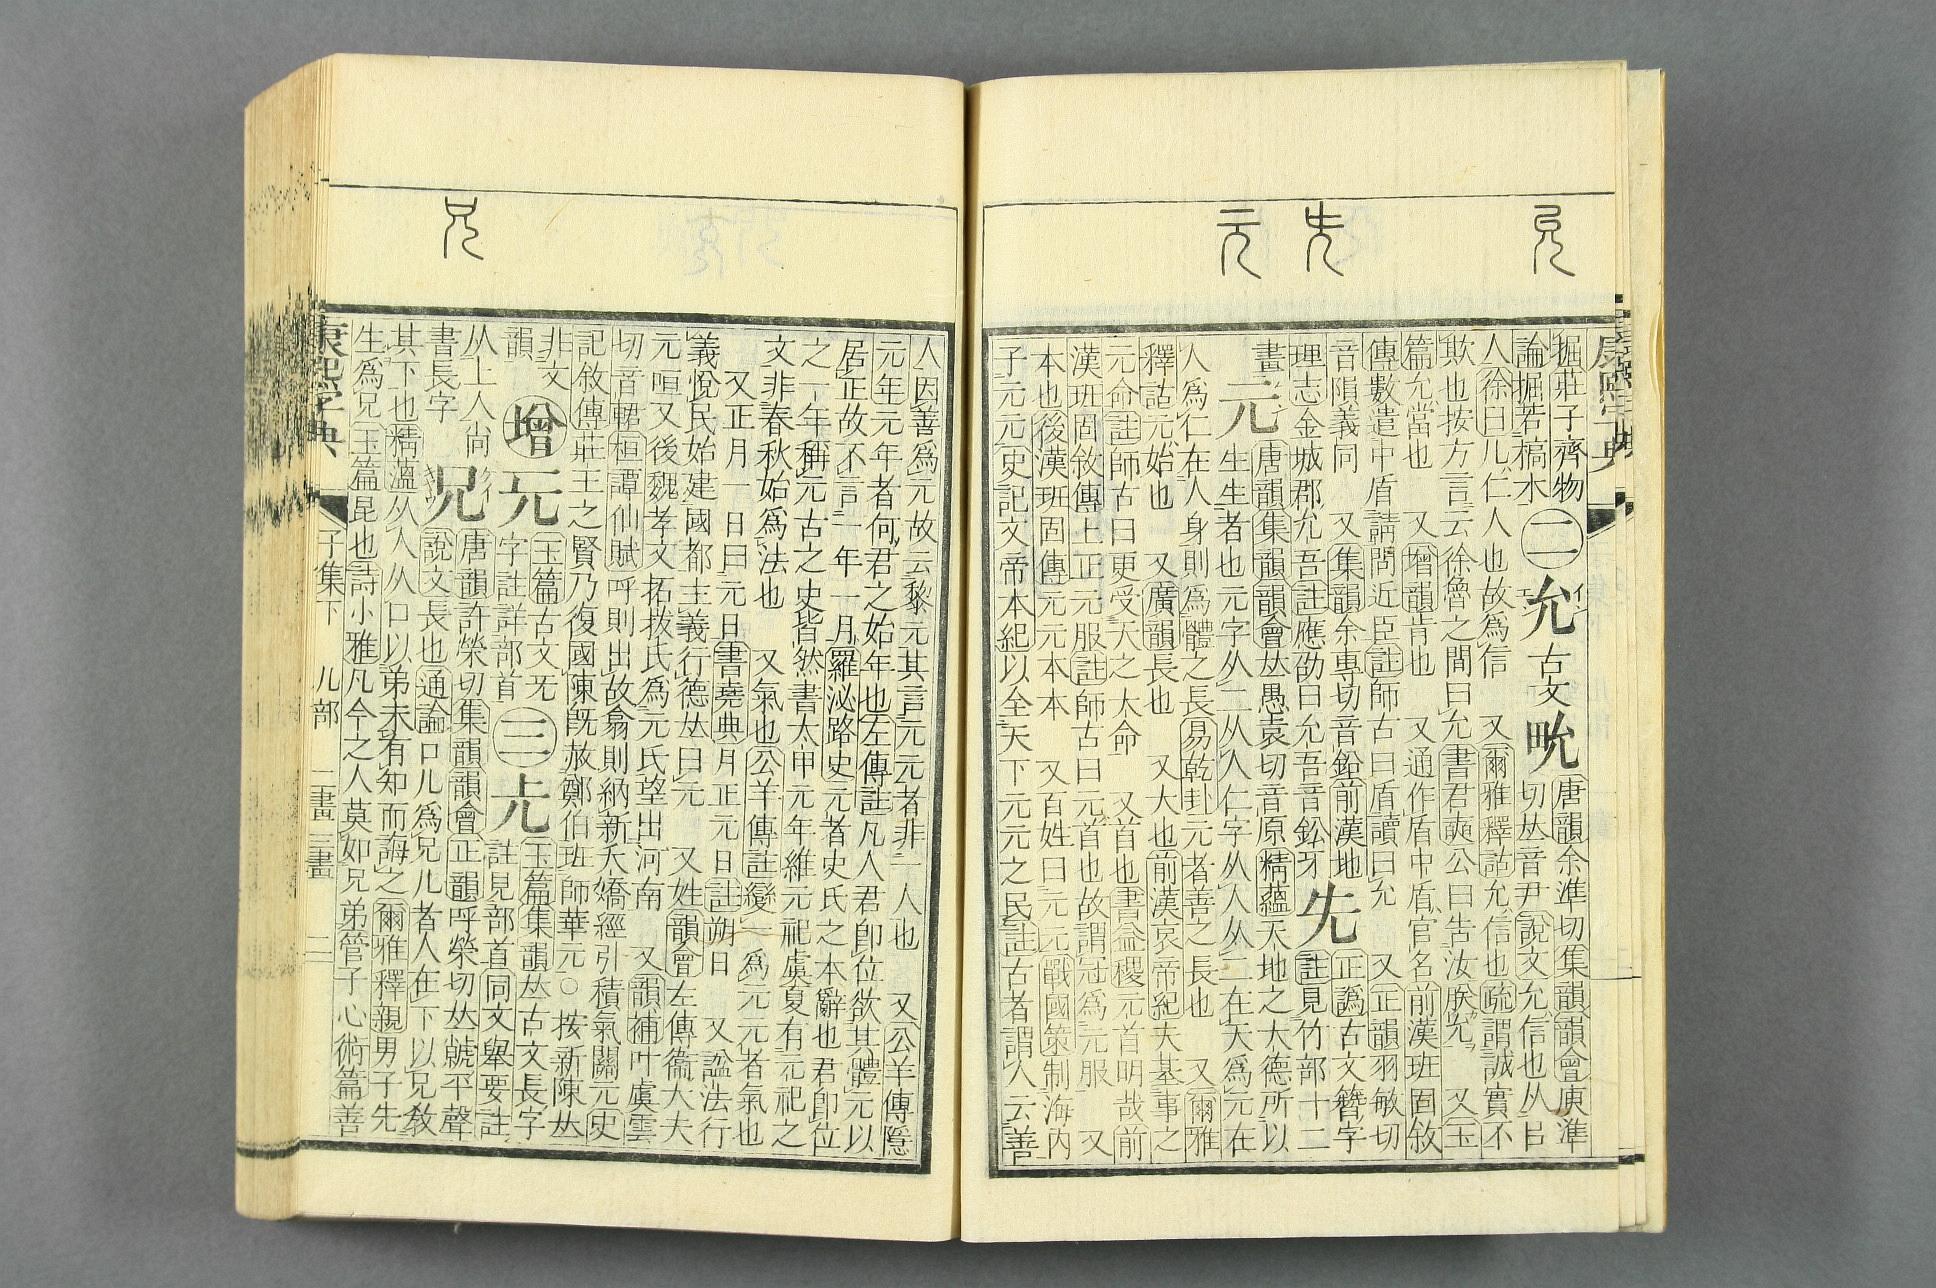 允
兂
元
掘莊子齊物
論掘若槁木
㊁
允
古文㽙
唐韻余準切集韻韻會庾準
切𠀤音尹說文允信也从㠯
人徐曰儿仁人也故爲信 又爾雅釋詁允信也疏謂誠實不
欺也按方言云徐魯之閒曰允書君奭公曰告汝朕允 又玉
篇允當也 又增韻肯也 又通作盾中盾官名前漢班固敘
傳數遣中盾請問近臣註師古曰盾讀曰允 又正韻羽敏切
音隕義同 又集韻余專切音鉛前漢地
理志金城郡允吾註應劭曰允吾音鈆牙
兂
正譌古文簪字
註見竹部十二
畫
元
唐韻集韻韻會𠀤愚袁切音原精蘊天地之大德所以
生生者也元字从二从人仁字从人从二在天爲元在
人爲仁在人身則爲體之長易乾卦元者善之長也 又爾雅
釋詁元始也 又廣韻長也 又大也前漢哀帝紀夫基事之
元命註師古曰更受天之大命 又首也書益稷元首明哉前
漢班固敘傳上正元服註師古曰元首也故謂冠爲元服 又
本也後漢班固傳元元本本 又百姓曰元元戰國策制海內
子元元史記文帝本紀以全天下元元之民註古者謂人云善
兄
人因善爲元故云黎元其言元元者非一人也 又公羊傳隱
元年元年者何君之始年也左傳註凡人君卽位欲其體元以
居正故不言一年一月羅泌路史元者史氏之本辭也君卽位
之一年稱元古之史皆然書太甲元年維元祀虞夏有元祀之
文非春秋始爲法也 又氣也公羊傳註變一爲元元者氣也
又正月一日曰元日書堯典月正元日註朔日 又諡法行
義悅民始建國都主義行德𠀤曰元 又姓韻會左傳衞大夫
元咺又後魏孝文拓拔氏爲元氏望出河南 又韻補叶虞雲
切音輑桓譚仙賦呼則出故翕則納新夭矯經引積氣關元史
記敘傳莊王之賢乃復國陳旣赦鄭伯班師華元○按新陳𠀤
非文
韻
增
玉篇古文旡
字註詳部首
㊂
玉篇集韻𠀤古文長字
註見部首同文舉要註
从上人尙
書長字
兄
唐韻許榮切集韻韻會正韻呼榮切𠀤虩平聲
說文長也通論口儿爲兄儿者人在下以兄敎
其下也精薀从人从口以弟未有知而誨之爾雅釋親男子先
生爲兄玉篇昆也詩小雅凡今之人莫如兄弟管子心術篇善
康熙字典
子集下
儿部
二畫三畫
二